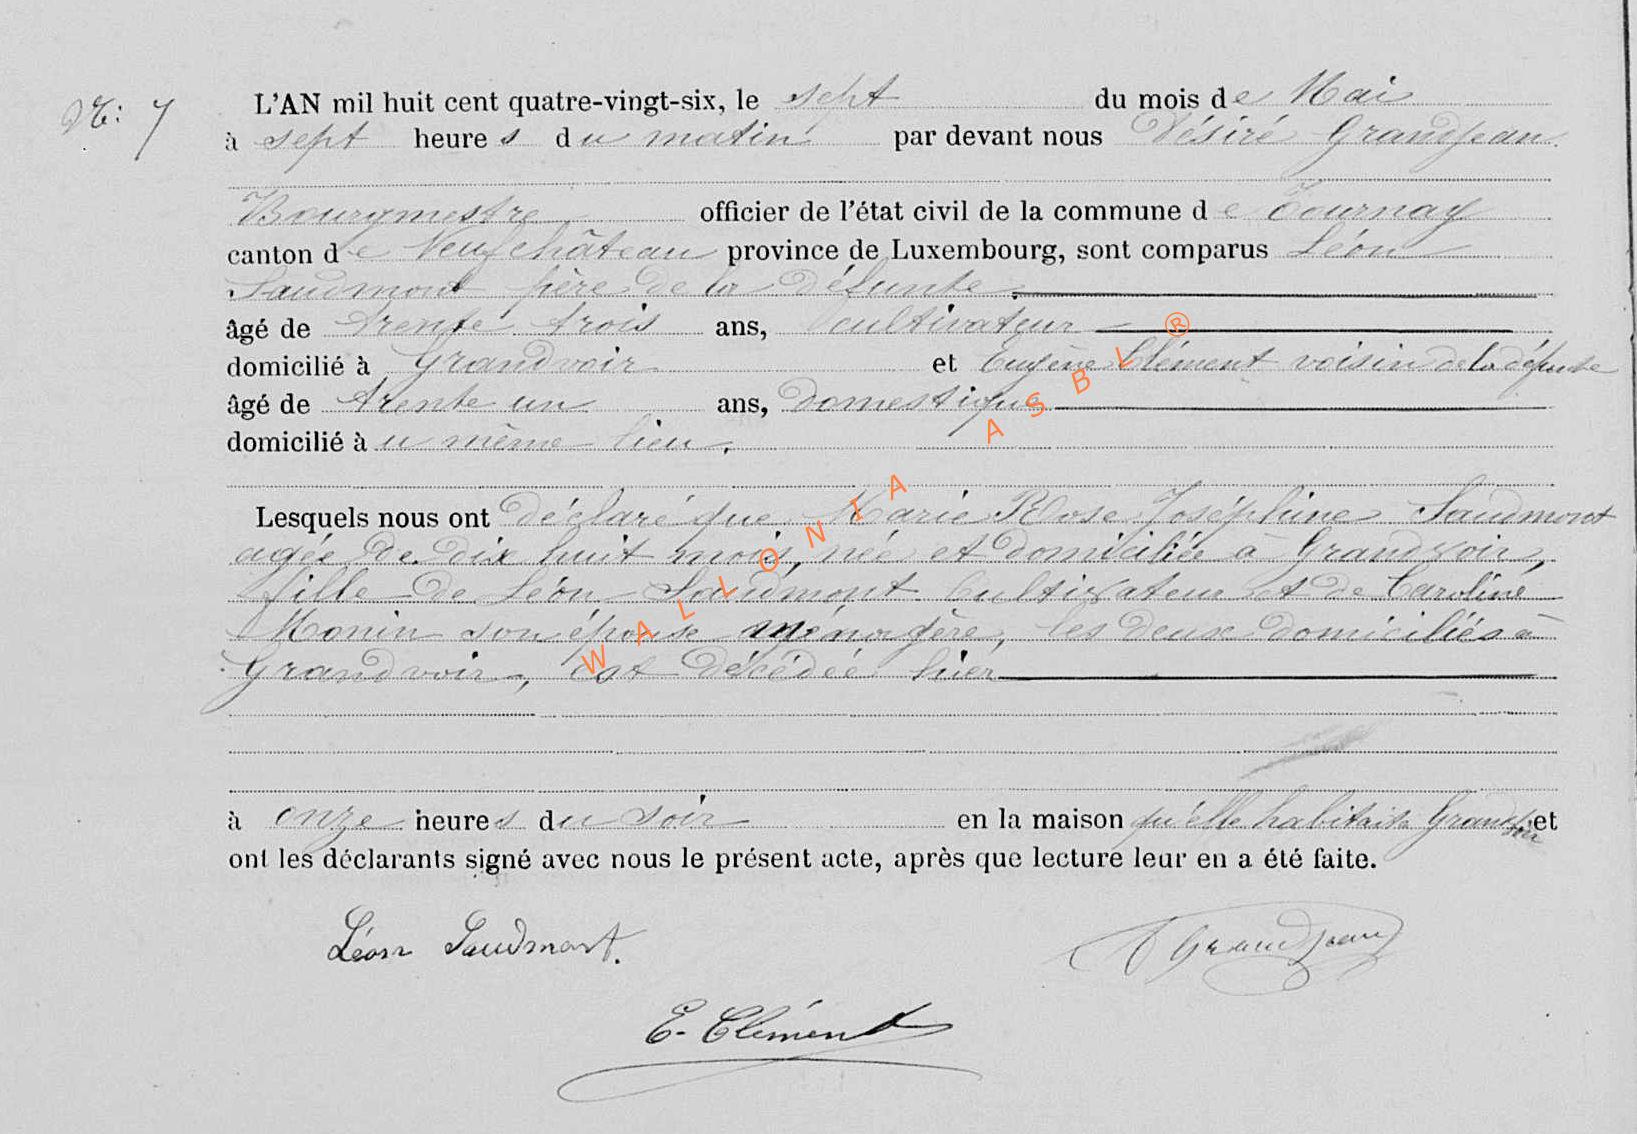 N°: 7
L'AN mil huit cent quatre-vingt-six, le sept du mois de Mai
à sept heures du matin par devant nous Désiré Grandjean
Bourgmestre officier de l'état civil de la commune de Tournay
canton de Neufchâteau province de Luxembourg, sont comparus Léon
Saudmont père de la défunte.
âgé de trente trois ans, cultivateur
domicilié à Grandvoir et Eugène Clément voisin de la défunte
âgé de trente un ans, domestique
domicilié à u même lieu.
Lesquels nous ont déclaré que Marie Rose Joséphine Saudmont
agée de dix huit mois, née et domiciliée à Grandvoir,
fille de Léon Saudmont Cultivateur et de Caroline
Monin son épouse ménagère, les deux domiciliés à
Grandvoir, est décédée hier
à onze heures du soir en la maison qu'elle habitait à Grandvoir et
ont les déclarants signé avec nous le présent acte, après que lecture leur en a été faite.
Léon Saudmont.
Grandjean
E. Clément
WALLONIA ASBL ®